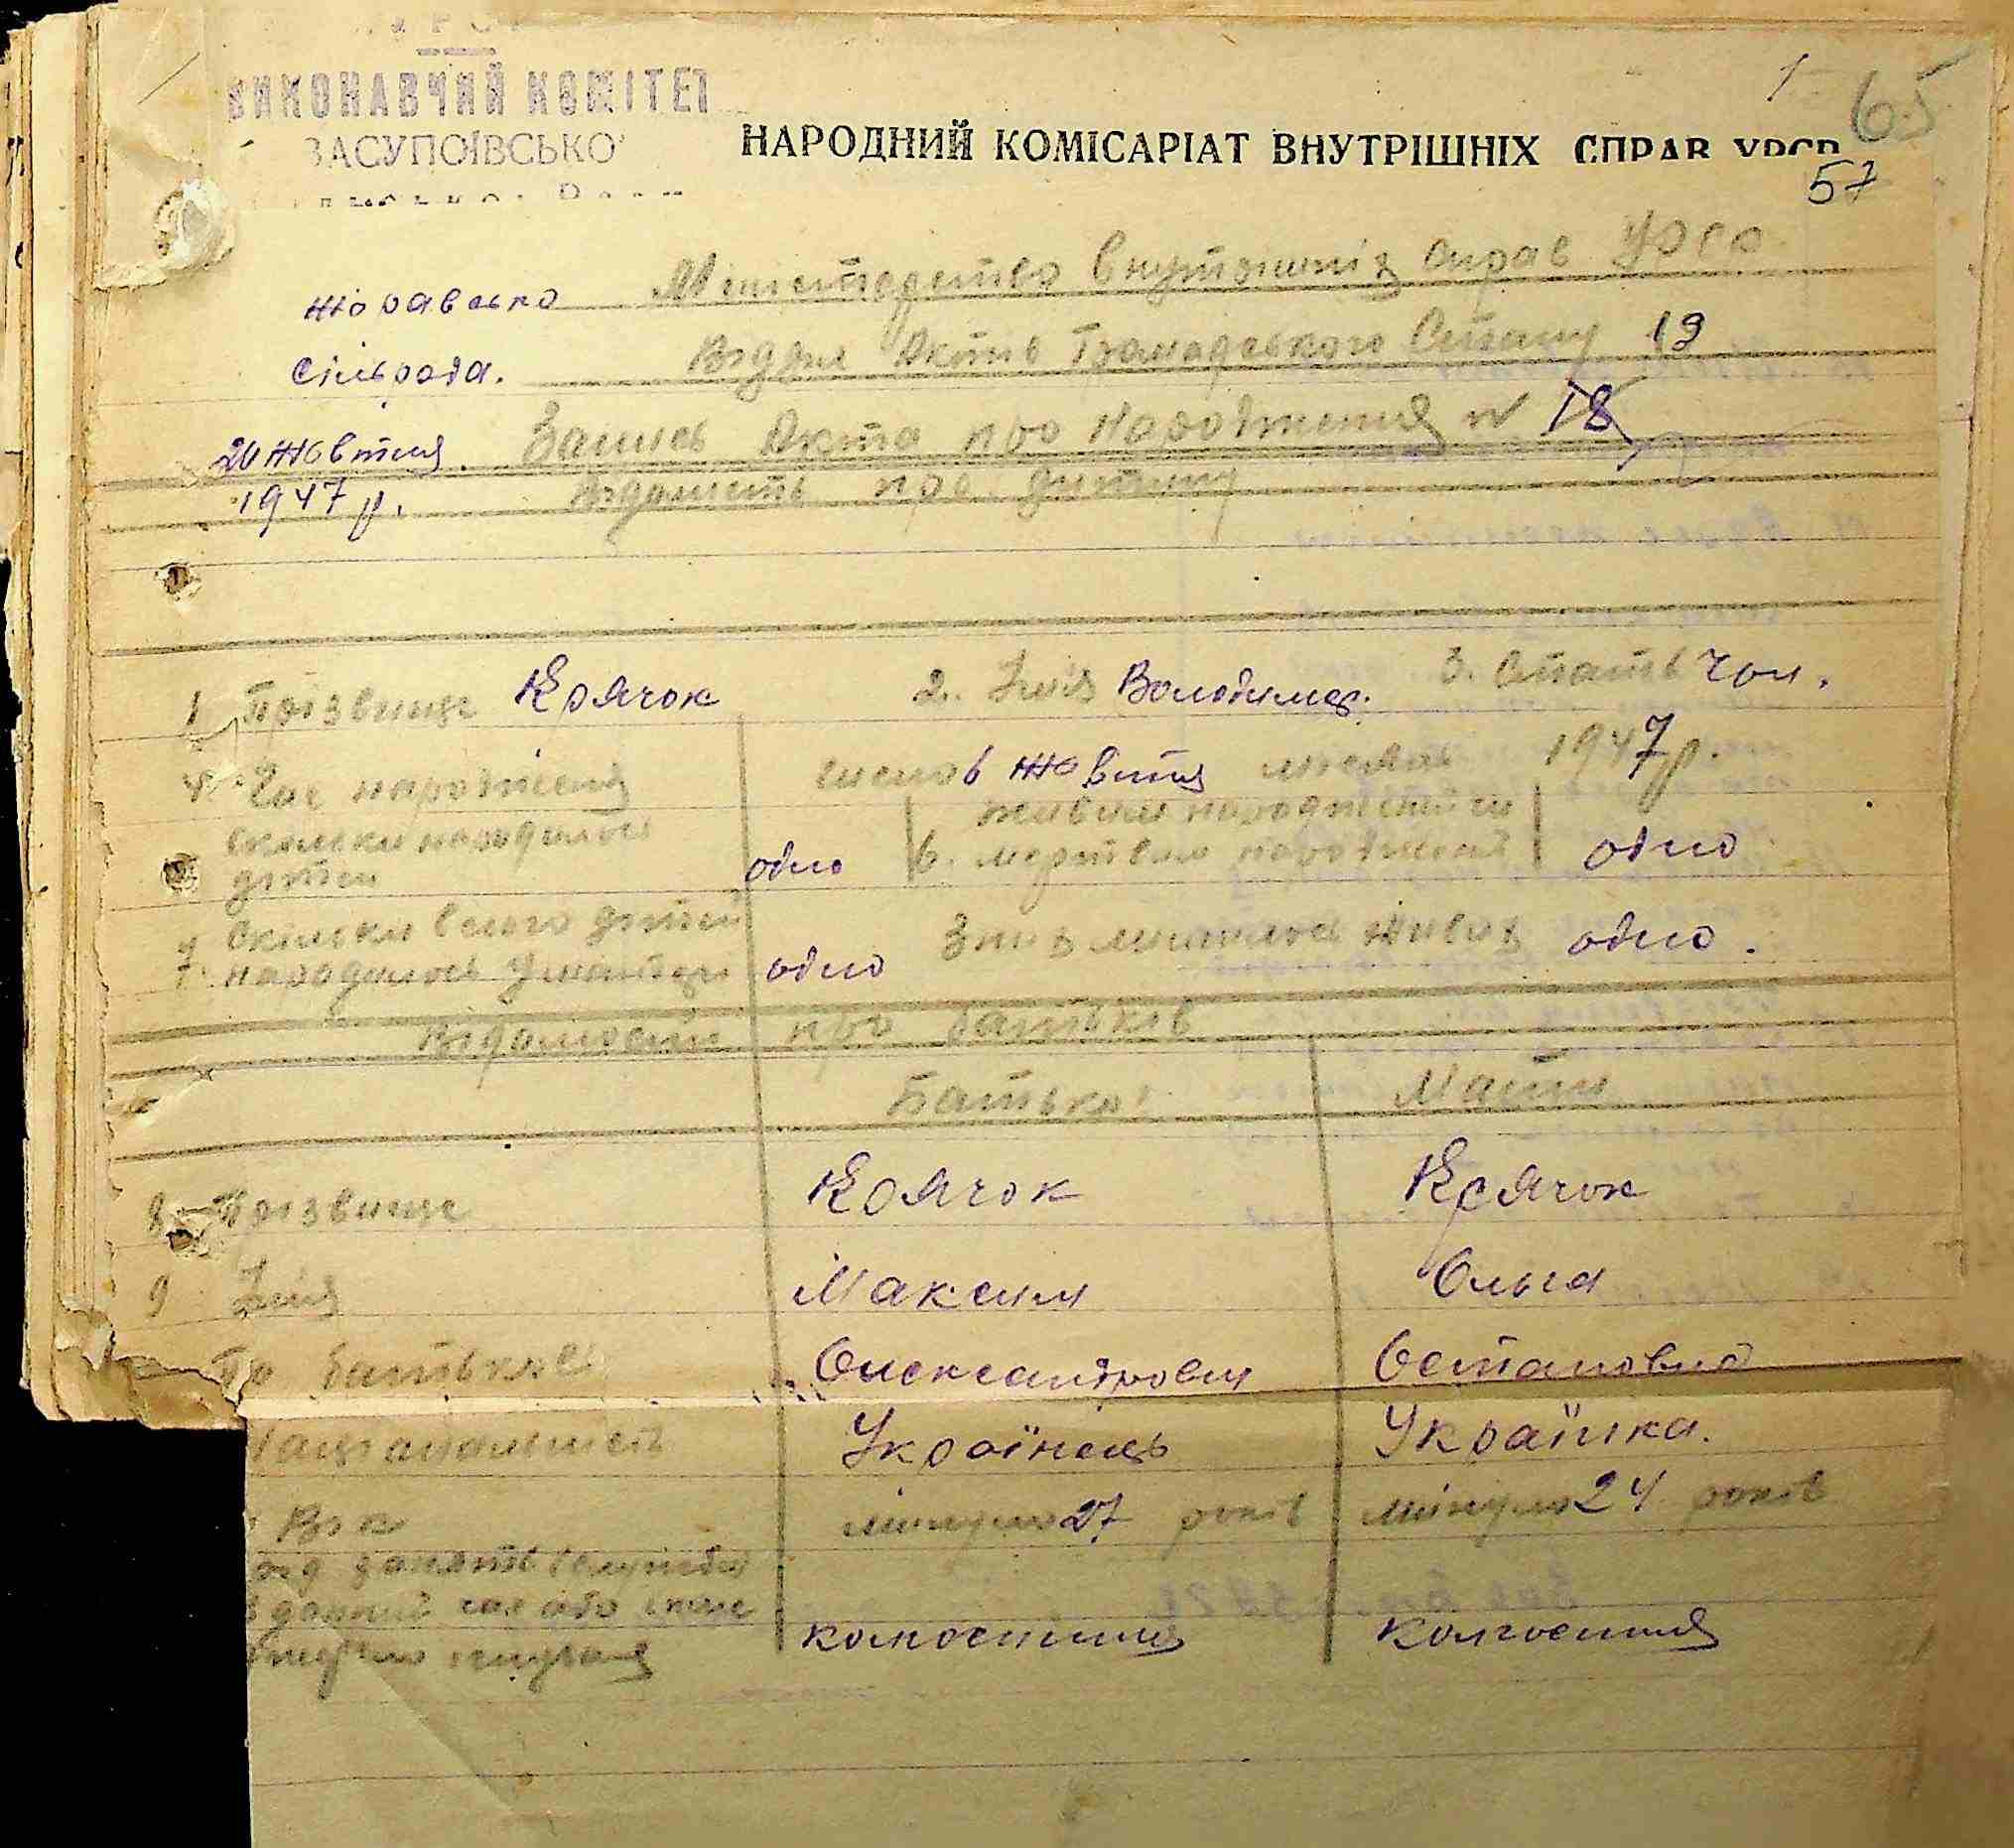 ВИКОНАВЧИЙ КОМІТЕТ
ЗАСУПОЇВСЬКО
1
65
НАРОДНИЙ КОМІСАРІАТ ВНУТРІШНІХ СПРАВ УРСР
57
Міністерство внутрішніх справ УРСР
сільрада.
Відділ Актів Громадського Стану 19
20 жовтня 1947 р.
Запись Акта про народження № 18
відомість про дитину
1 Прізвище Крячок 2. Імя Володимер. 3. Стать чол.
4. Час народження число 6 жовтня місяць 1947 р.
скільки народилось дітей одно
6. живим народженій чи мертвим народженій одно
7. скільки всього дітей народилось у матері одно
З них лишилось живих одно.
Відомости про батьків
Батько Мати
8 Прізвище Крячок Крячок
9 Імя Максим Ольга
По батькові Олександрович Остаповна
Національність Українець Українка.
Вік минуло 27 років минуло 24 років
колгоспник колгоспниця